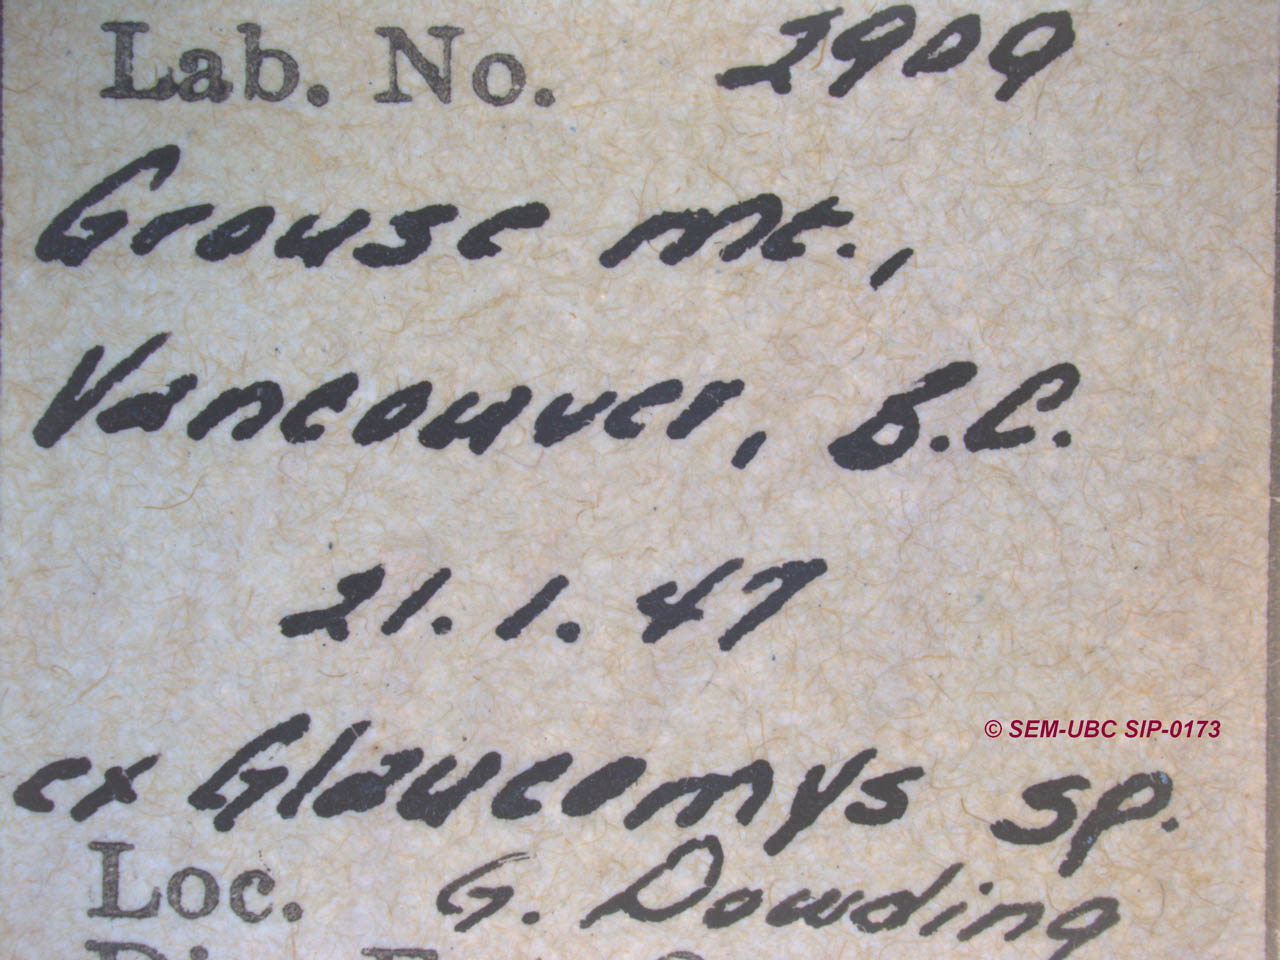 Lab. No. 2909
Grouse Mt.,
Vancouver, B.C.
21.1.47
© SEM-UBC SIP-0173
ex Glaucomys sp.
Loc. G. Dowding